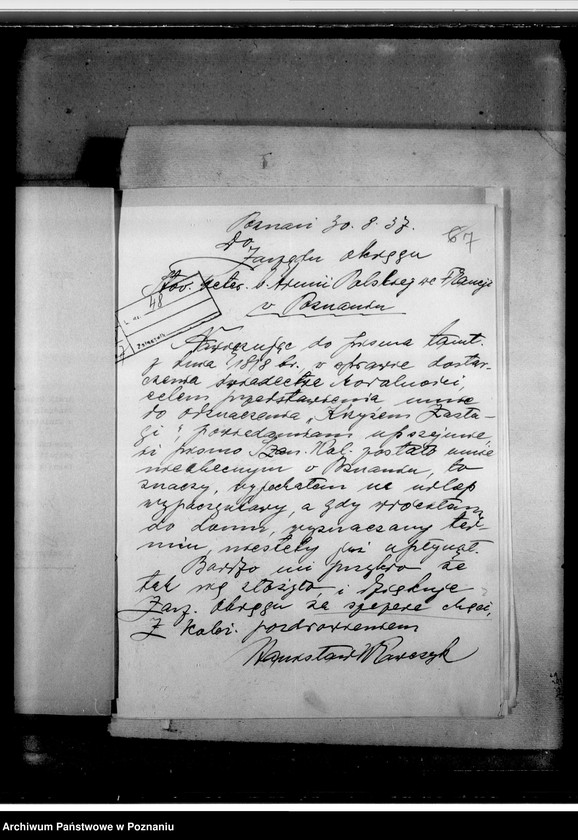 Poznań 30. 8. 37.
67
Do
Zarządu Okręgu
Stow. Weter. b. Armii Polskiej we Francji
w Poznaniu
L. dz. 48
Załącznik
Nawiązując do pisma tamt.
z dnia 18/8 br. w sprawie dostar-
czenia świadectwa moralności,
celem przedstawienia mnie
do odznaczenia "Krzyżem Zasłu-
gi", powiadamiam uprzejmie,
że pismo Szan. Kol. postało mnie
nieobecnym w Poznaniu, to
znaczy, wyjechałem na urlop
wypoczynkowy, a gdy wróciłem
do domu, wyznaczony ter-
min, niestety już upłynął.
Bardzo mi przykro że
tak się złożyło i dziękuję
Zarz. Okręgu za szczere chęci,
Z kole. pozdrowieniem
Stanisław Wawrczyk
Archiwum Państwowe w Poznaniu